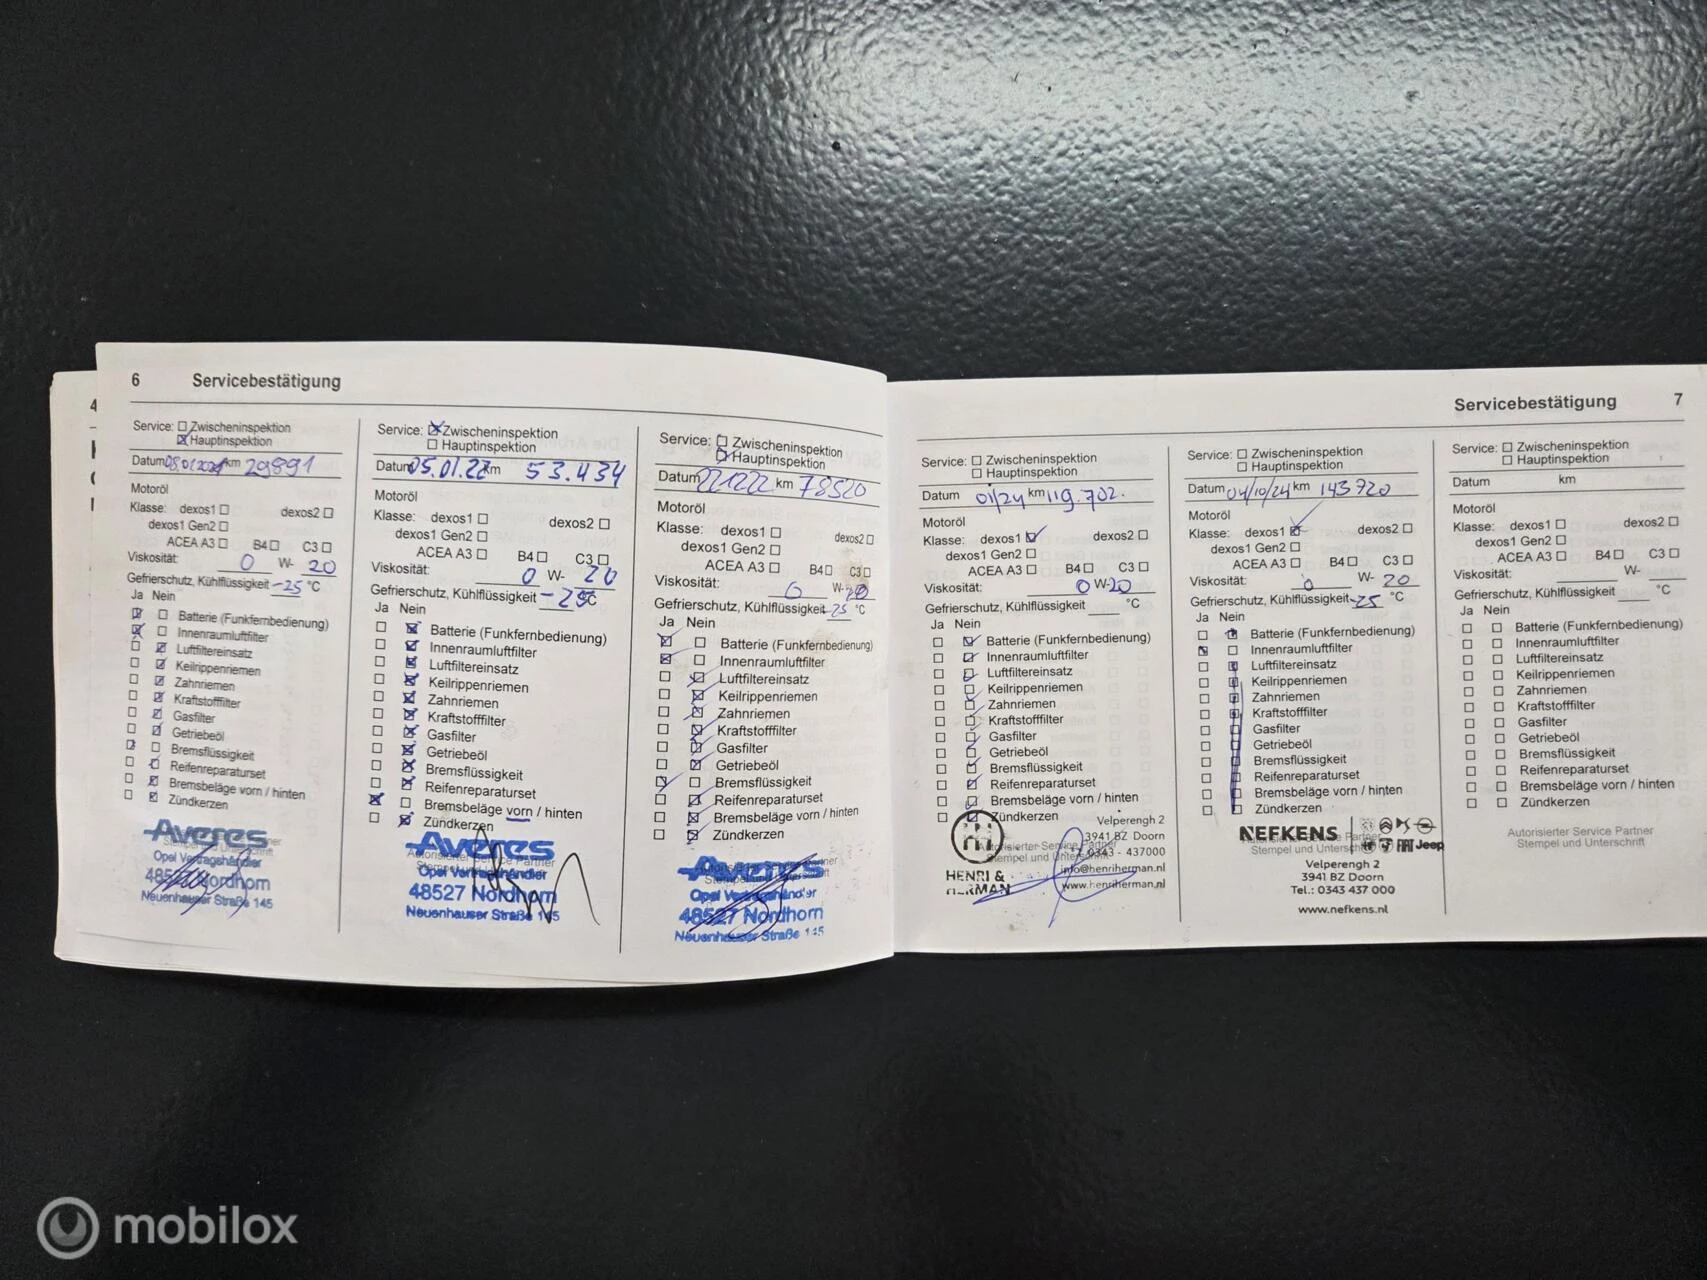 6 Servicebestätigung
Service: Zwischeninspektion
Hauptinspektion
Datum 08.01.2021 km 29891
Motoröl
Klasse: dexos1 dexos2
dexos1 Gen2
ACEA A3 B4 C3
Viskosität: 0 W- 20
Gefrierschutz, Kühlflüssigkeit -25 °C
Ja Nein
Batterie (Funkfernbedienung)
Innenraumluftfilter
Luftfiltereinsatz
Keilrippenriemen
Zahnriemen
Kraftstofffilter
Gasfilter
Getriebeöl
Bremsflüssigkeit
Reifenreparaturset
Bremsbeläge vorn / hinten
Zündkerzen
Averes
Opel Vertragshändler
48527 Nordhorn
Neuenhauser Straße 145
Service: Zwischeninspektion
Hauptinspektion
Datum 05.01.22 km 53.434
Motoröl
Klasse: dexos1 dexos2
dexos1 Gen2
ACEA A3 B4 C3
Viskosität: 0 W- 20
Gefrierschutz, Kühlflüssigkeit -25 °C
Ja Nein
Batterie (Funkfernbedienung)
Innenraumluftfilter
Luftfiltereinsatz
Keilrippenriemen
Zahnriemen
Kraftstofffilter
Gasfilter
Getriebeöl
Bremsflüssigkeit
Reifenreparaturset
Bremsbeläge vorn / hinten
Zündkerzen
Averes
Autorisierter Service Partner
Opel Vertragshändler
48527 Nordhorn
Neuenhauser Straße 145
Service: Zwischeninspektion
Hauptinspektion
Datum 221222 km 78520
Motoröl
Klasse: dexos1 dexos2
dexos1 Gen2
ACEA A3 B4 C3
Viskosität: 0 W- 20
Gefrierschutz, Kühlflüssigkeit -25 °C
Ja Nein
Batterie (Funkfernbedienung)
Innenraumluftfilter
Luftfiltereinsatz
Keilrippenriemen
Zahnriemen
Kraftstofffilter
Gasfilter
Getriebeöl
Bremsflüssigkeit
Reifenreparaturset
Bremsbeläge vorn / hinten
Zündkerzen
Averes
Opel Vertragshändler
48527 Nordhorn
Neuenhauser Straße 145
Servicebestätigung 7
Service: Zwischeninspektion
Hauptinspektion
Datum 01/24 km 119.702.
Motoröl
Klasse: dexos1 dexos2
dexos1 Gen2
ACEA A3 B4 C3
Viskosität: 0 W- 20
Gefrierschutz, Kühlflüssigkeit °C
Ja Nein
Batterie (Funkfernbedienung)
Innenraumluftfilter
Luftfiltereinsatz
Keilrippenriemen
Zahnriemen
Kraftstofffilter
Gasfilter
Getriebeöl
Bremsflüssigkeit
Reifenreparaturset
Bremsbeläge vorn / hinten
Zündkerzen
Velperengh 2
3941 BZ Doorn
Autorisierter Service Partner
Stempel und Unterschrift
0343 - 437000
HENRI & HERMAN
info@henriherman.nl
www.henriherman.nl
Service: Zwischeninspektion
Hauptinspektion
Datum 04/10/24 km 143920
Motoröl
Klasse: dexos1 dexos2
dexos1 Gen2
ACEA A3 B4 C3
Viskosität: 0 W- 20
Gefrierschutz, Kühlflüssigkeit -25 °C
Ja Nein
Batterie (Funkfernbedienung)
Innenraumluftfilter
Luftfiltereinsatz
Keilrippenriemen
Zahnriemen
Kraftstofffilter
Gasfilter
Getriebeöl
Bremsflüssigkeit
Reifenreparaturset
Bremsbeläge vorn / hinten
Zündkerzen
NEFKENS
Autorisierter Service Partner
Stempel und Unterschrift
FIAT Jeep
Velperengh 2
3941 BZ Doorn
Tel.: 0343 437 000
www.nefkens.nl
Service: Zwischeninspektion
Hauptinspektion
Datum km
Motoröl
Klasse: dexos1 dexos2
dexos1 Gen2
ACEA A3 B4 C3
Viskosität: W-
Gefrierschutz, Kühlflüssigkeit °C
Ja Nein
Batterie (Funkfernbedienung)
Innenraumluftfilter
Luftfiltereinsatz
Keilrippenriemen
Zahnriemen
Kraftstofffilter
Gasfilter
Getriebeöl
Bremsflüssigkeit
Reifenreparaturset
Bremsbeläge vorn / hinten
Zündkerzen
Autorisierter Service Partner
Stempel und Unterschrift
mobilox